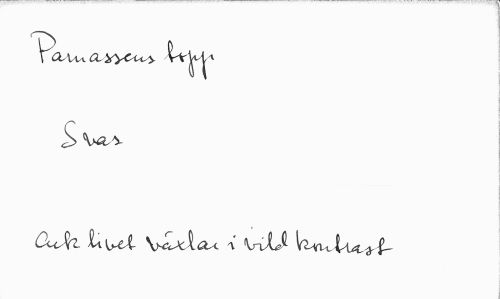 Parnassens topp
Svas
Ack livet växlar i vild kontrast